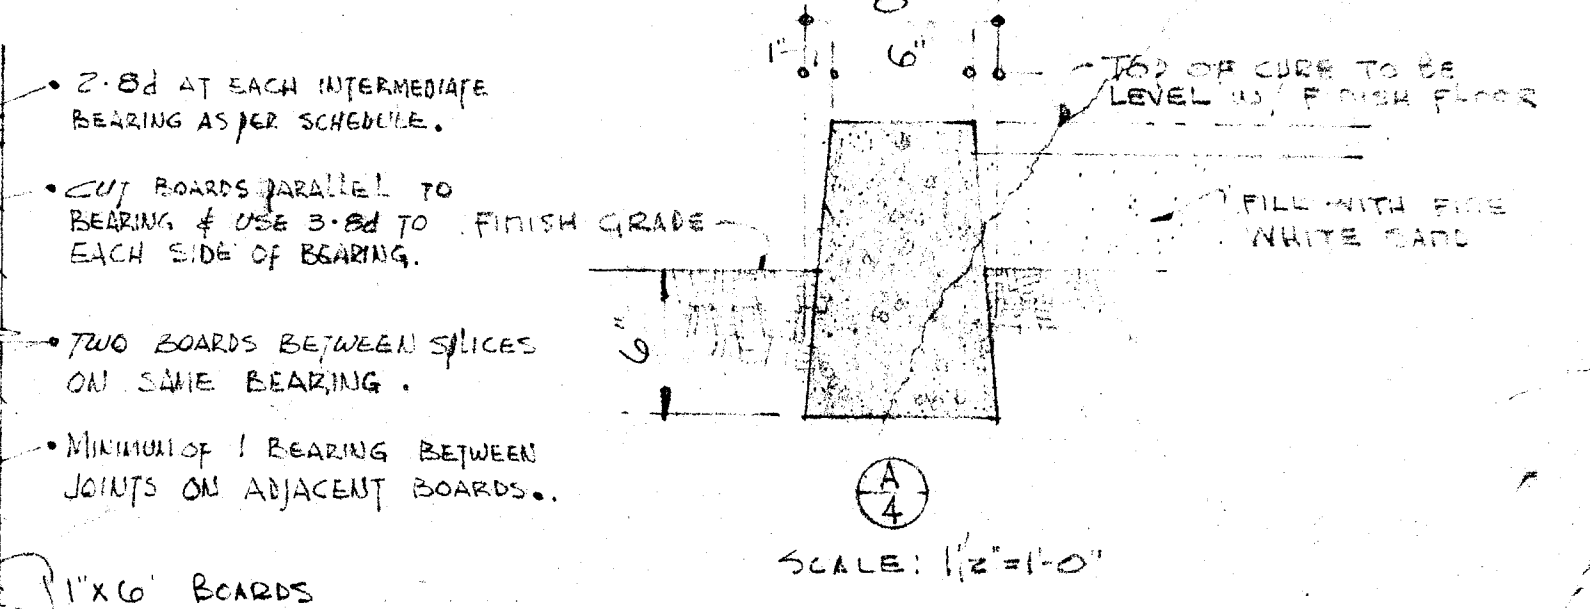 • 2-8d AT EACH INTERMEDIATE
BEARING AS PER SCHEDULE.
• CUT BOARDS PARALLEL TO
BEARING & USE 3-8d TO
EACH SIDE OF BEARING.
• TWO BOARDS BETWEEN SPLICES
ON SAME BEARING.
• MINIMUM OF 1 BEARING BETWEEN
JOINTS ON ADJACENT BOARDS.
1"X6" BOARDS
1"
6"
TOP OF CURB TO BE
LEVEL W/ FINISH FLOOR
FINISH GRADE
FILL WITH FINE
WHITE SAND
6"
A
4
SCALE: 1 1/2"=1'-0"